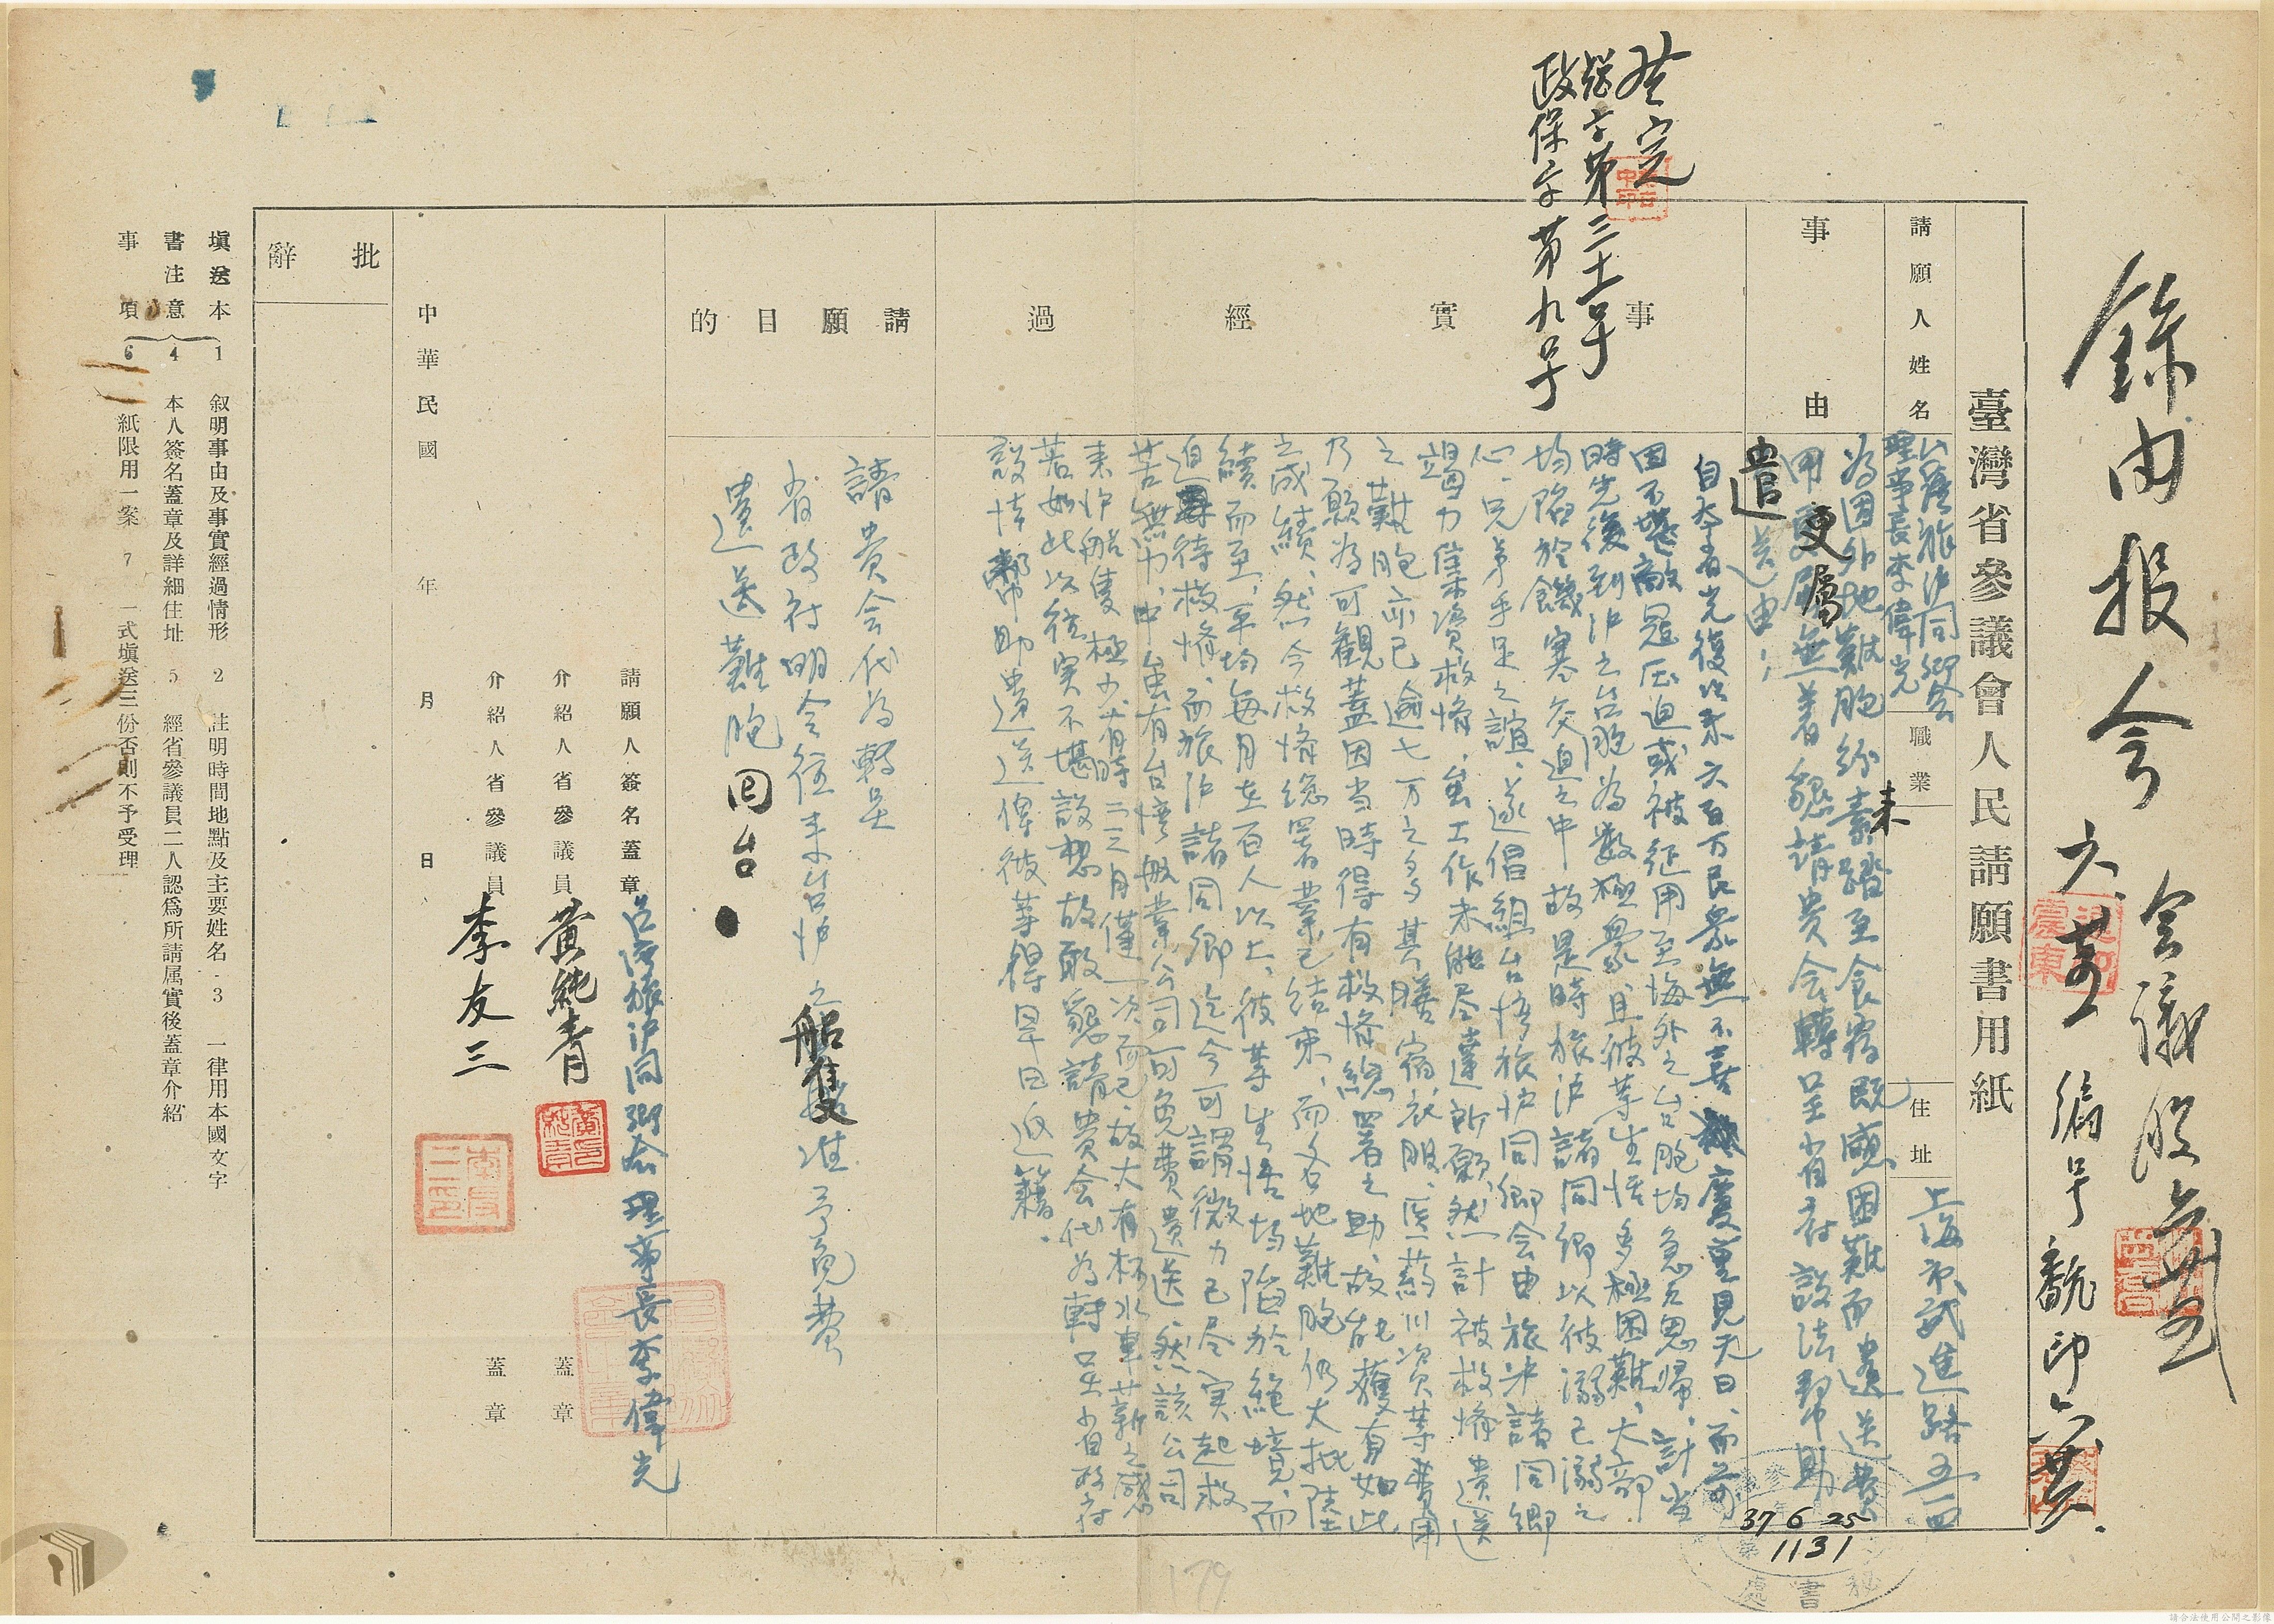 錄由报会
会議股
六、
編号
印
臺灣省參議會人民請願書用紙
請願人姓名
台灣旅沪同鄉会
理事長李偉光
職業
住址
上海市武進路五一四
事由
為因外地難胞紛紛來踏至食宿既感困難而遣送費
用更屬無着懇請貴会轉呈省府設法幇助
遣送由
政保字第九号
事實經過
自本省光復以來六百万民衆無不喜慶重見天日、而前
因不堪敵寇压迫或被征用至海外之台胞均急急思歸、計当
時先後到沪之台胞為数極衆、且彼等生活多極困難、大部
均陷於饑寒交迫之中故是時旅沪諸同鄉以彼溺己溺之
心、兄弟手足之誼、遂倡組台湾旅沪同鄉会由旅沪諸同鄉
竭力集資救濟、虽工作未能尽達所願、然計被救濟遣送
之難胞亦已逾七万之多其膳宿、衣服、医药川资等費用
乃願為可觀蓋因当時得有救濟總署之助、故能獲有如此
之成績、然今救濟總署業已结束、而各地難胞仍大批陸
續而至、平均每月在百人以上、彼等生活均陷於絶境、而
迫待救濟、而旅沪諸同鄉迄今可謂微力已尽实起救
苦無力、中虽有台湾航業公司可免費遣送、然該公司
来沪船隻極少、有時二三月僅一次而已、故大有杯水車薪之感
若如此以往实不堪設想、故敢懇請貴会代為轉呈省政府
設法幇助遣送俾彼等得早日返籍.
請願目的
請貴会代為轉呈
省政府明令往来台沪之船隻准予免費
遣送難胞回台
請願人簽名蓋章
台灣旅沪同鄉会理事長李偉光
介紹人省參議員 黃純青 蓋章
介紹人省參議員 李友三 蓋章
中華民國 年 月 日
批辭
填送本書注意事項
1 叙明事由及事實經過情形 2 註明時間地點及主要姓名 3 一律用本國文字
4 本人簽名蓋章及詳細住址 5 經省參議員二人認爲所請属實後蓋章介紹
6 一紙限用一案 7 一式填送三份否則不予受理
37 6 25
1131
秘書處
179
請合法使用公開之影像